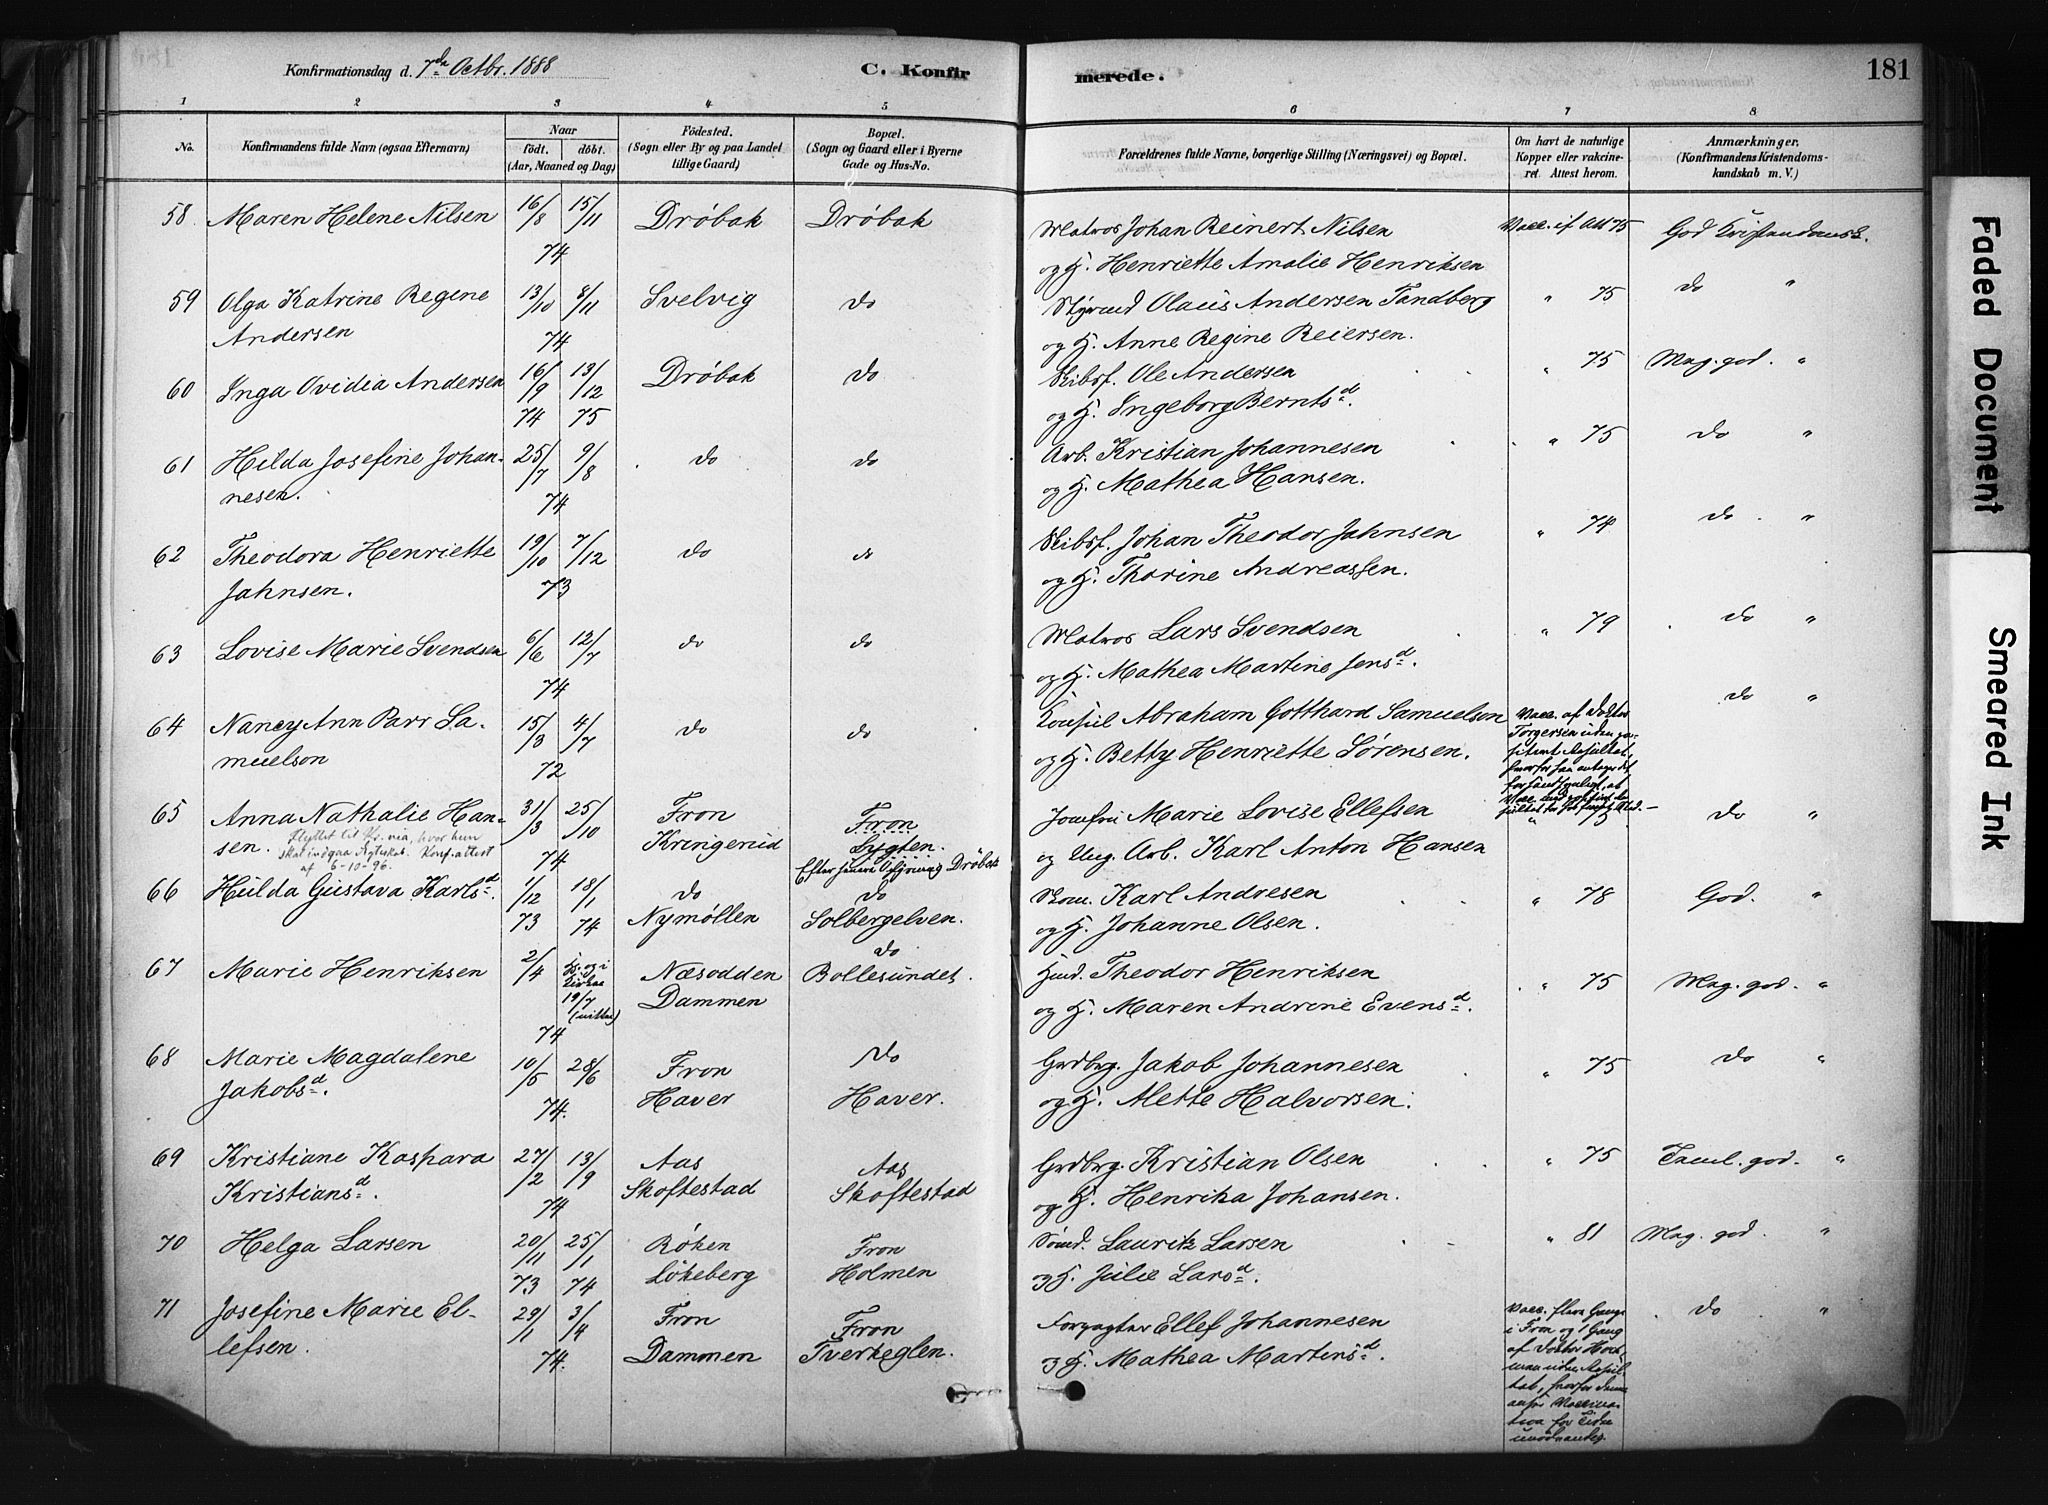 Konfirmationsdag d. 7de Octbr. 1888
C. Konfirmerede.
181
1 2 3 4 5 6 7 8
No.
Konfirmandens fulde Navn (ogsaa Efternavn)
Naar
født. døbt.
(Aar, Maaned og Dag)
Fødested.
(Sogn eller By og paa Landet
tillige Gaard)
Bopæl.
(Sogn og Gaard eller i Byerne
Gade og Hus-No.
Forældrenes fulde Navne, borgerlige Stilling (Næringsvei) og Bopæl.
Om havt de naturlige
Kopper eller vakcine-
ret. Attest herom.
Anmærkninger.
(Konfirmandens Kristendoms-
kundskab m. V.)
58 Maren Helene Nilsen 16/8 15/11 Drøbak Drøbak Matros Johan Reinert Nilsen Vacc. if Att 75 God Kristendomsk.
74 og H. Henriette Amalie Henriksen
59 Olga Katrine Regine 13/10 8/11 Svelvig do Styrmd Olaus Andersen Tandberg " 75 do "
Andersen 74 og H. Anne Regine Reiersen.
60 Inga Ovidia Andersen 16/9 13/12 Drøbak do Skibsf. Ole Andersen " 75 Meg. god. "
74 75 og H. Ingeborg Berntsd.
61 Hilda Josefine Johan- 25/7 9/8 do do Arb. Kristian Johannesen " 75 do "
nesen. 74 og H. Mathea Hansen.
62 Theodora Henriette 19/10 7/12 do do Skibsf. Johan Theodor Jahnsen " 74 do "
Jahnsen. 73 og H. Thorine Andreassen.
63 Lovise Marie Svendsen 6/6 12/7 do do Matros Lars Svendsen " 79 do "
74 og H. Mathea Martine Jensd.
64 Nancy Ann Parr Sa- 15/3 4/7 do do Konsul Abraham Gotthard Samuelson Vacc. af Doktor do "
muelson 72 og H. Betty Henriette Sørensen. Torgersen uden po-
sitivt Resultat,
hvorfor han antager det
65 Anna Nathalie Han- 31/3 25/10 Fron Fron Jomfru Marie Lovise Ellefsen " 75 do "
sen. 74 Kringerud Lygten. og Ung. Arb. Karl Anton Hansen
flyttet til Kr.nia, hvor hun
skal indgaa Ægteskab. Konf.attest
af 6-10-96.
Efter senere Drøbak
66 Hulda Gustava Karlsd. 1/12 18/1 do do Skom. Karl Andresen " 78 God. "
73 74 Nymøllen Solbergelven. og H. Johanne Olsen.
67 Marie Henriksen 2/4 19/7 Næsodden do Theodor Henriksen " 75 Meg. god. "
74 Dammen Bollesundet. og H. Maren Andrine Evensd.
68 Marie Magdalene 10/5 28/6 Fron do Grdbrg. Jakob Johannesen " 75 do "
Jakobsd. 74. Haver Haver. og H. Alette Halvorsen.
69 Kristiane Kaspara 27/2 13/9 Aas Aas Grdbrg. Kristian Olsen " 75 Taml. god. "
Kristiansd. 74 Skoftestad Skoftestad og H. Henrika Johansen.
70 Helga Larsen 20/11 25/1 Røken Fron Sømd. Lauritz Larsen " 81 Meg. god. "
73 74 Løkeberg Holmen og H. Julie Larsd.
71 Josefine Marie El- 29/1 3/4 Fron Fron Forpagter Ellef Johannesen Vacc. flere Gange do "
lefsen. 74. Dammen Tverkeglen. og H. Mathea Martinsd. i Fron og 1 Gang
af Doktor
uden Resul-
tat, hvorfor denne
anser Vaccina-
tion for
unødvendig.
Faded Document
Smeared Ink